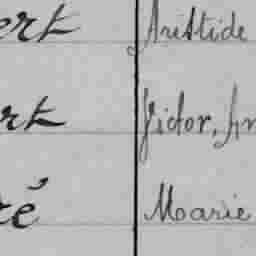 ert Aristide
rt Victor, An
ré Marie